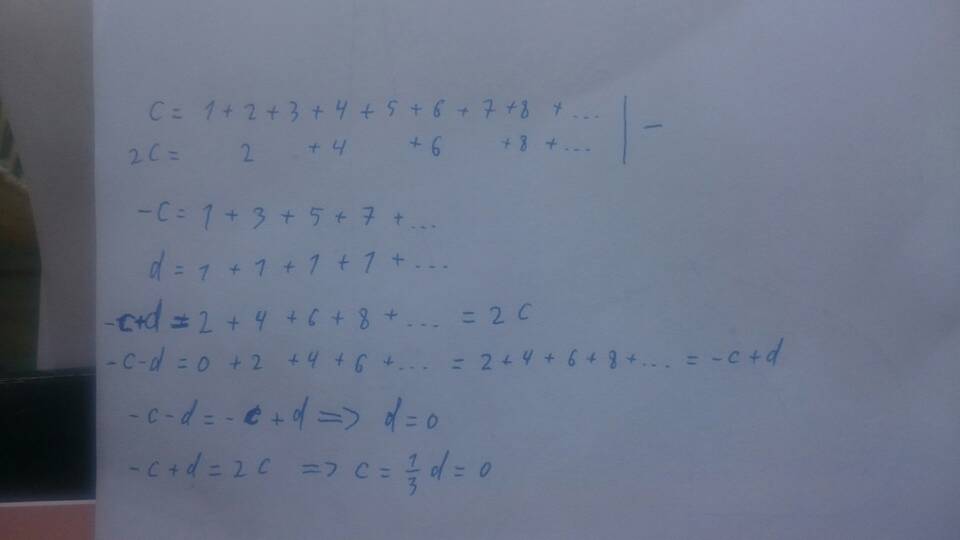 C = 1 + 2 + 3 + 4 + 5 + 6 + 7 + 8 + ... | -
2C = 2 + 4 + 6 + 8 + ...
-C = 1 + 3 + 5 + 7 + ...
d = 1 + 1 + 1 + 1 + ...
-c+d = 2 + 4 + 6 + 8 + ... = 2 C
-c-d = 0 + 2 + 4 + 6 + ... = 2 + 4 + 6 + 8 + ... = -c + d
-c - d = -c + d => d = 0
-c + d = 2 c => c = 1/3 d = 0